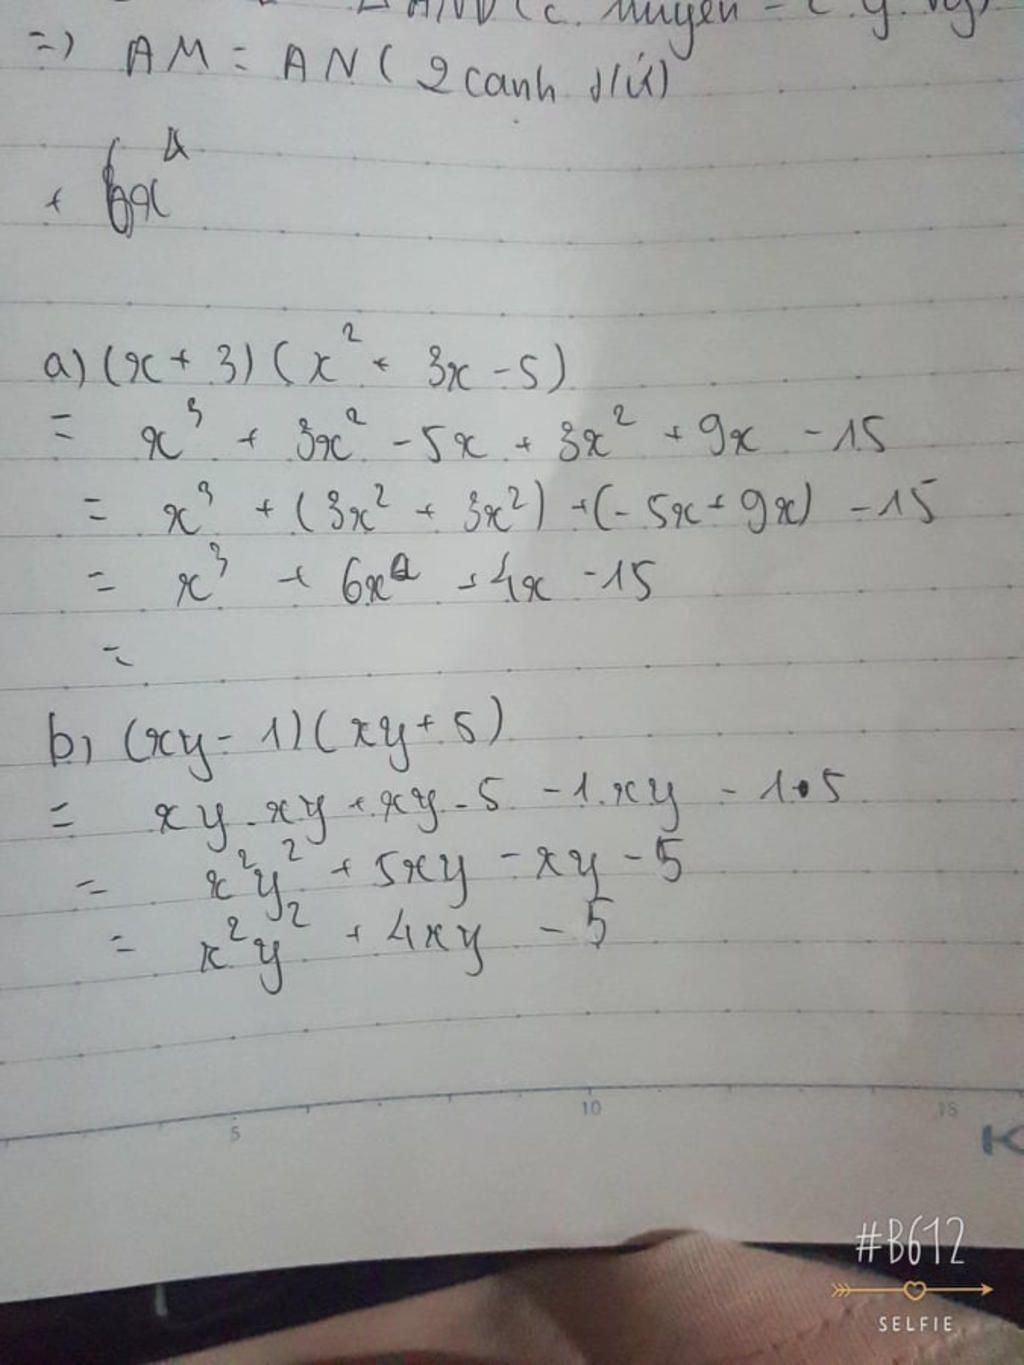 ΔANB (c. huyền -
=) AM = AN ( 2 canh t/ứ)
+ 6x⁴
a) (x + 3) ( x² + 3x - 5 )
= x³ + 3x² - 5x + 3x² + 9x - 15
= x³ + (3x² + 3x²) + (- 5x + 9x) - 15
= x³ + 6x² + 4x - 15
=
b) (xy - 1) ( xy + 5 )
= xy . xy + xy . 5 - 1. xy - 1 . 5
= x²y² + 5xy - xy - 5
= x²y² + 4xy - 5
5 10 15
K
#B612
SELFIE